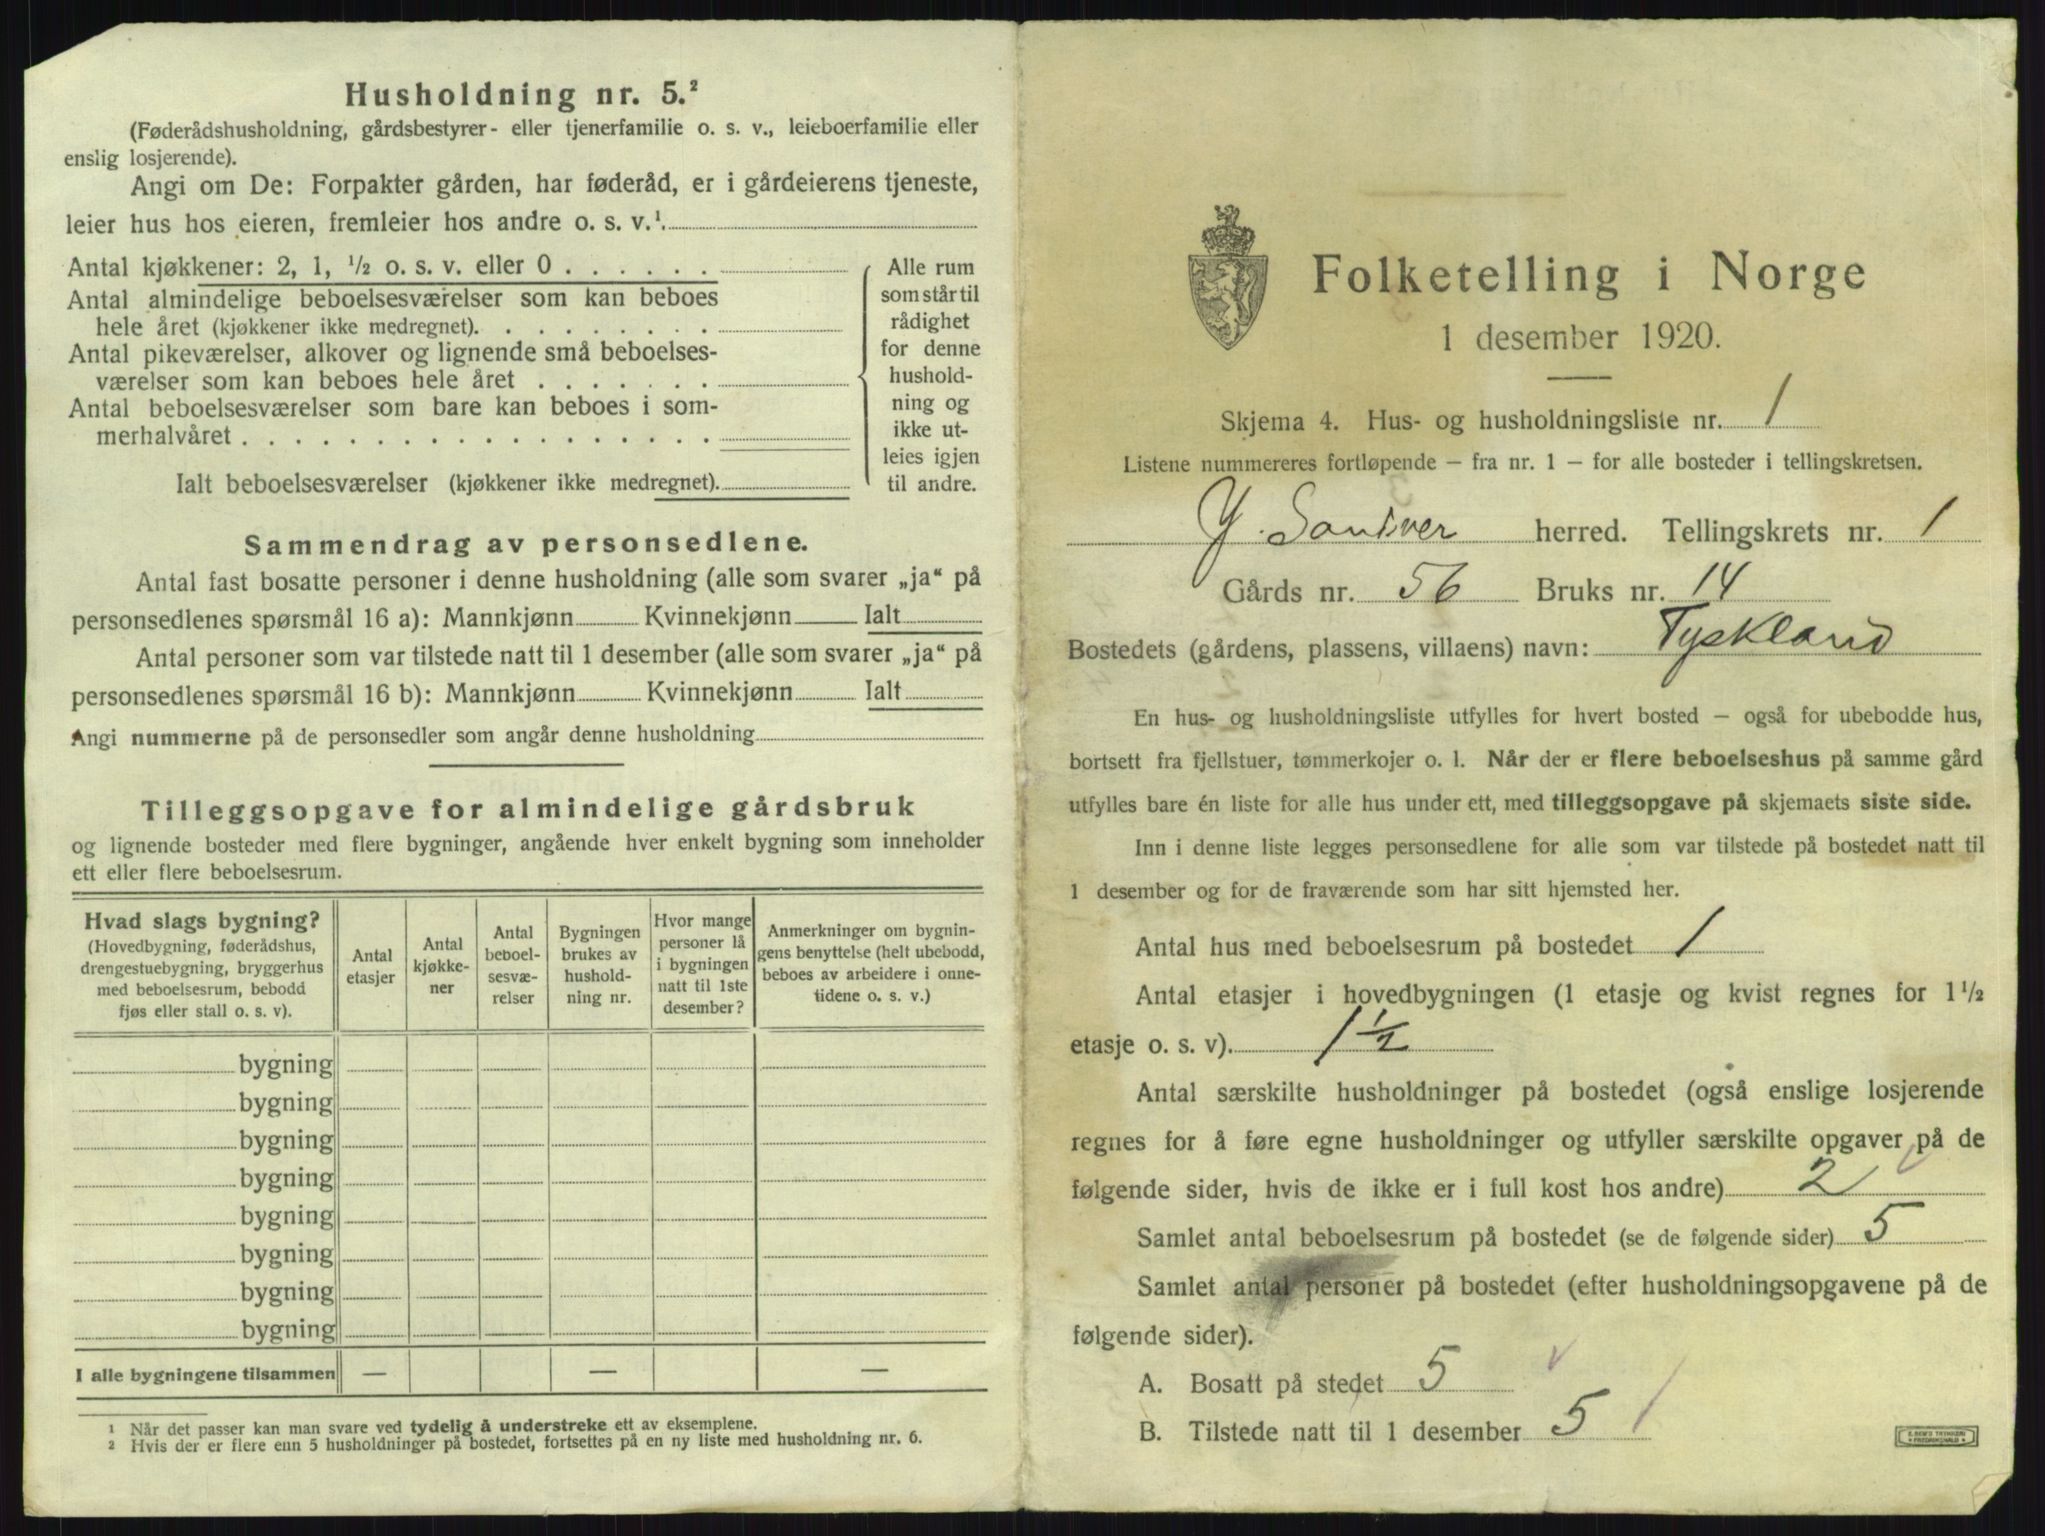 Husholdning nr. 5.²
(Føderådshusholdning, gårdsbestyrer- eller tjenerfamilie o. s. v., leieboerfamilie eller
enslig losjerende).
Angi om De: Forpakter gården, har føderåd, er i gårdeierens tjeneste,
leier hus hos eieren, fremleier hos andre o. s. v.¹
Antal kjøkkener: 2, 1, ½ o. s. v. eller 0 . . . . . .
Antal almindelige beboelsesværelser som kan beboes
hele året (kjøkkener ikke medregnet). . . . . . . . .
Antal pikeværelser, alkover og lignende små beboelses-
værelser som kan beboes hele året . . . . . . .
Antal beboelsesværelser som bare kan beboes i som-
merhalvåret . . . . . . . . . . . . . . . . . .
Ialt beboelsesværelser (kjøkkener ikke medregnet).
Alle rum
som står til
rådighet
for denne
hushold-
ning og
ikke ut-
leies igjen
til andre.
Sammendrag av personsedlene.
Antal fast bosatte personer i denne husholdning (alle som svarer „ja“ på
personsedlenes spørsmål 16 a): Mannkjønn Kvinnekjønn Ialt
Antal personer som var tilstede natt til 1 desember (alle som svarer „ja“ på
personsedlenes spørsmål 16 b): Mannkjønn Kvinnekjønn Ialt
Angi nummerne på de personsedler som angår denne husholdning
Tilleggsopgave for almindelige gårdsbruk
og lignende bosteder med flere bygninger, angående hver enkelt bygning som inneholder
ett eller flere beboelsesrum.
Hvad slags bygning?
(Hovedbygning, føderådshus,
drengestuebygning, bryggerhus
med beboelsesrum, bebodd
fjøs eller stall o. s. v).
Antal
etasjer
Antal
kjøkke-
ner
Antal
beboel-
sesvæ-
relser
Bygningen
brukes av
hushold-
ning nr.
Hvor mange
personer lå
i bygningen
natt til 1ste
desember?
Anmerkninger om bygnin-
gens benyttelse (helt ubebodd,
beboes av arbeidere i onne-
tidene o. s. v.)
bygning
bygning
bygning
bygning
bygning
bygning
bygning
bygning
I alle bygningene tilsammen — — —
¹ Når det passer kan man svare ved tydelig å understreke ett av eksemplene.
² Hvis der er flere enn 5 husholdninger på bostedet, fortsettes på en ny liste med husholdning nr. 6.
Folketelling i Norge
1 desember 1920.
Skjema 4. Hus- og husholdningsliste nr. 1
Listene nummereres fortløpende — fra nr. 1 — for alle bosteder i tellingskretsen.
Y. Sandsver herred. Tellingskrets nr. 1
Gårds nr. 56 Bruks nr. 14
Bostedets (gårdens, plassens, villaens) navn: Tyskland
En hus- og husholdningsliste utfylles for hvert bosted — også for ubebodde hus,
bortsett fra fjellstuer, tømmerkojer o. l. Når der er flere beboelseshus på samme gård
utfylles bare én liste for alle hus under ett, med tilleggsopgave på skjemaets siste side.
Inn i denne liste legges personsedlene for alle som var tilstede på bostedet natt til
1 desember og for de fraværende som har sitt hjemsted her.
Antal hus med beboelsesrum på bostedet 1
Antal etasjer i hovedbygningen (1 etasje og kvist regnes for 1½
etasje o. s. v). 1½
Antal særskilte husholdninger på bostedet (også enslige losjerende
regnes for å føre egne husholdninger og utfyller særskilte opgaver på de
følgende sider, hvis de ikke er i full kost hos andre) 2
Samlet antal beboelsesrum på bostedet (se de følgende sider) 5
Samlet antal personer på bostedet (efter husholdningsopgavene på de
følgende sider).
A. Bosatt på stedet 5
B. Tilstede natt til 1 desember 5